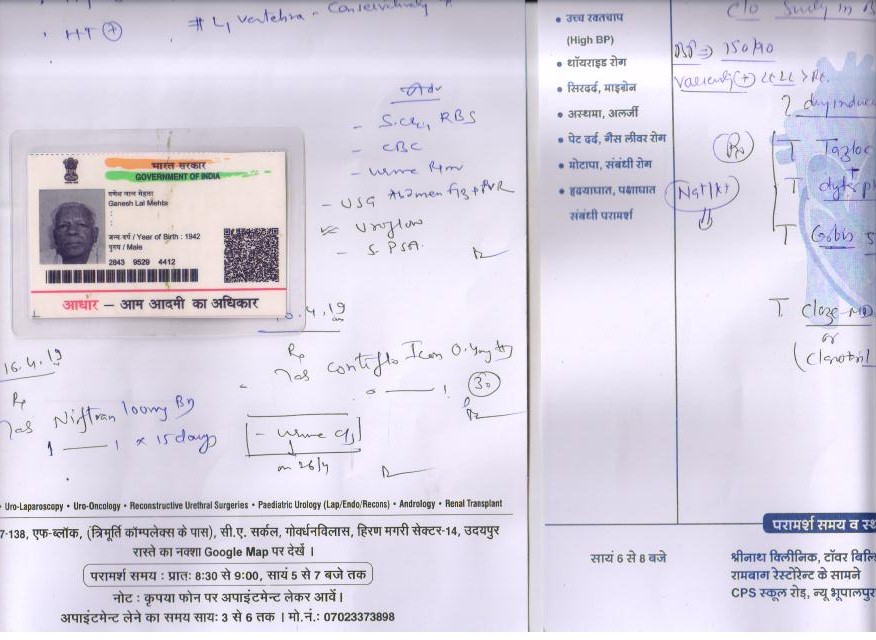 # L4 vertebra - Conservatively
HT +
Adv
- S.Cr, RBS
- CBC
- Urine R/m
- USG Abdmen + PVR
Uroflow
- S. PSA
भारत सरकार
GOVERNMENT OF INDIA
गणेश लाल मेहता
Ganesh Lal Mehta
जन्म वर्ष / Year of Birth : 1942
पुरुष / Male
2843 9529 4412
आधार – आम आदमी का अधिकार
.4.19
16.4.19
Rp
Tab Contiflo Icon 0.4mg
30
Rp
Tab Niftran 100mg BD
1 — 1 x 15 days
- Urine c/s
on 26/4
• Uro-Laparoscopy • Uro-Oncology • Reconstructive Urethral Surgeries • Paediatric Urology (Lap/Endo/Recons) • Andrology • Renal Transplant
7-138, एफ-ब्लॉक, (त्रिमूर्ति कॉम्पलेक्स के पास), सी.ए. सर्कल, गोवर्धनविलास, हिरण मगरी सेक्टर-14, उदयपुर
रास्ते का नक्शा Google Map पर देखें ।
परामर्श समय : प्रातः 8:30 से 9:00, सायं 5 से 7 बजे तक
नोट : कृपया फोन पर अपाइंटमेन्ट लेकर आवें ।
अपाइंटमेन्ट लेने का समय सायः 3 से 6 तक । मो.नं.: 07023373898
• उच्च रक्तचाप
(High BP)
• थॉयराइड रोग
• सिरदर्द, माइग्रेन
• अस्थमा, अलर्जी
• पेट दर्द, गैस लीवर रोग
• मोटापा, संबंधी रोग
• हृदयाघात, पक्षाघात
संबंधी परामर्श
c/o
BP => 150/90
? drug induce
Rx
T Tazloc
T dytor p
T Gabis
T Cloze-MD
or
(Clonotril
परामर्श समय व स्थ
सायं 6 से 8 बजे
श्रीनाथ क्लिनीक, टॉवर बिल्डि
रामबाग रेस्टोरेन्ट के सामने
CPS स्कूल रोड़, न्यू भूपालपुर